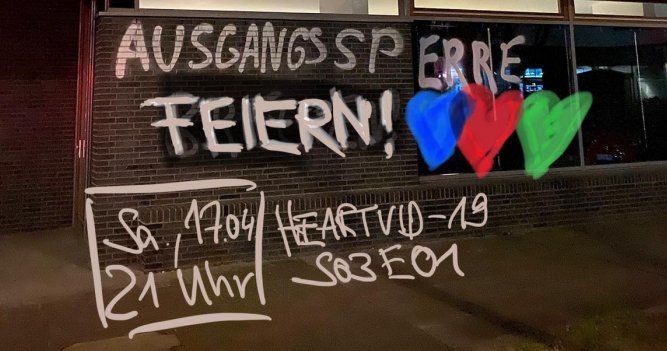 AUSGANGSSPERRE
FEIERN!
Sa., 17.04
21 Uhr
HEARTVID-19
S03E01